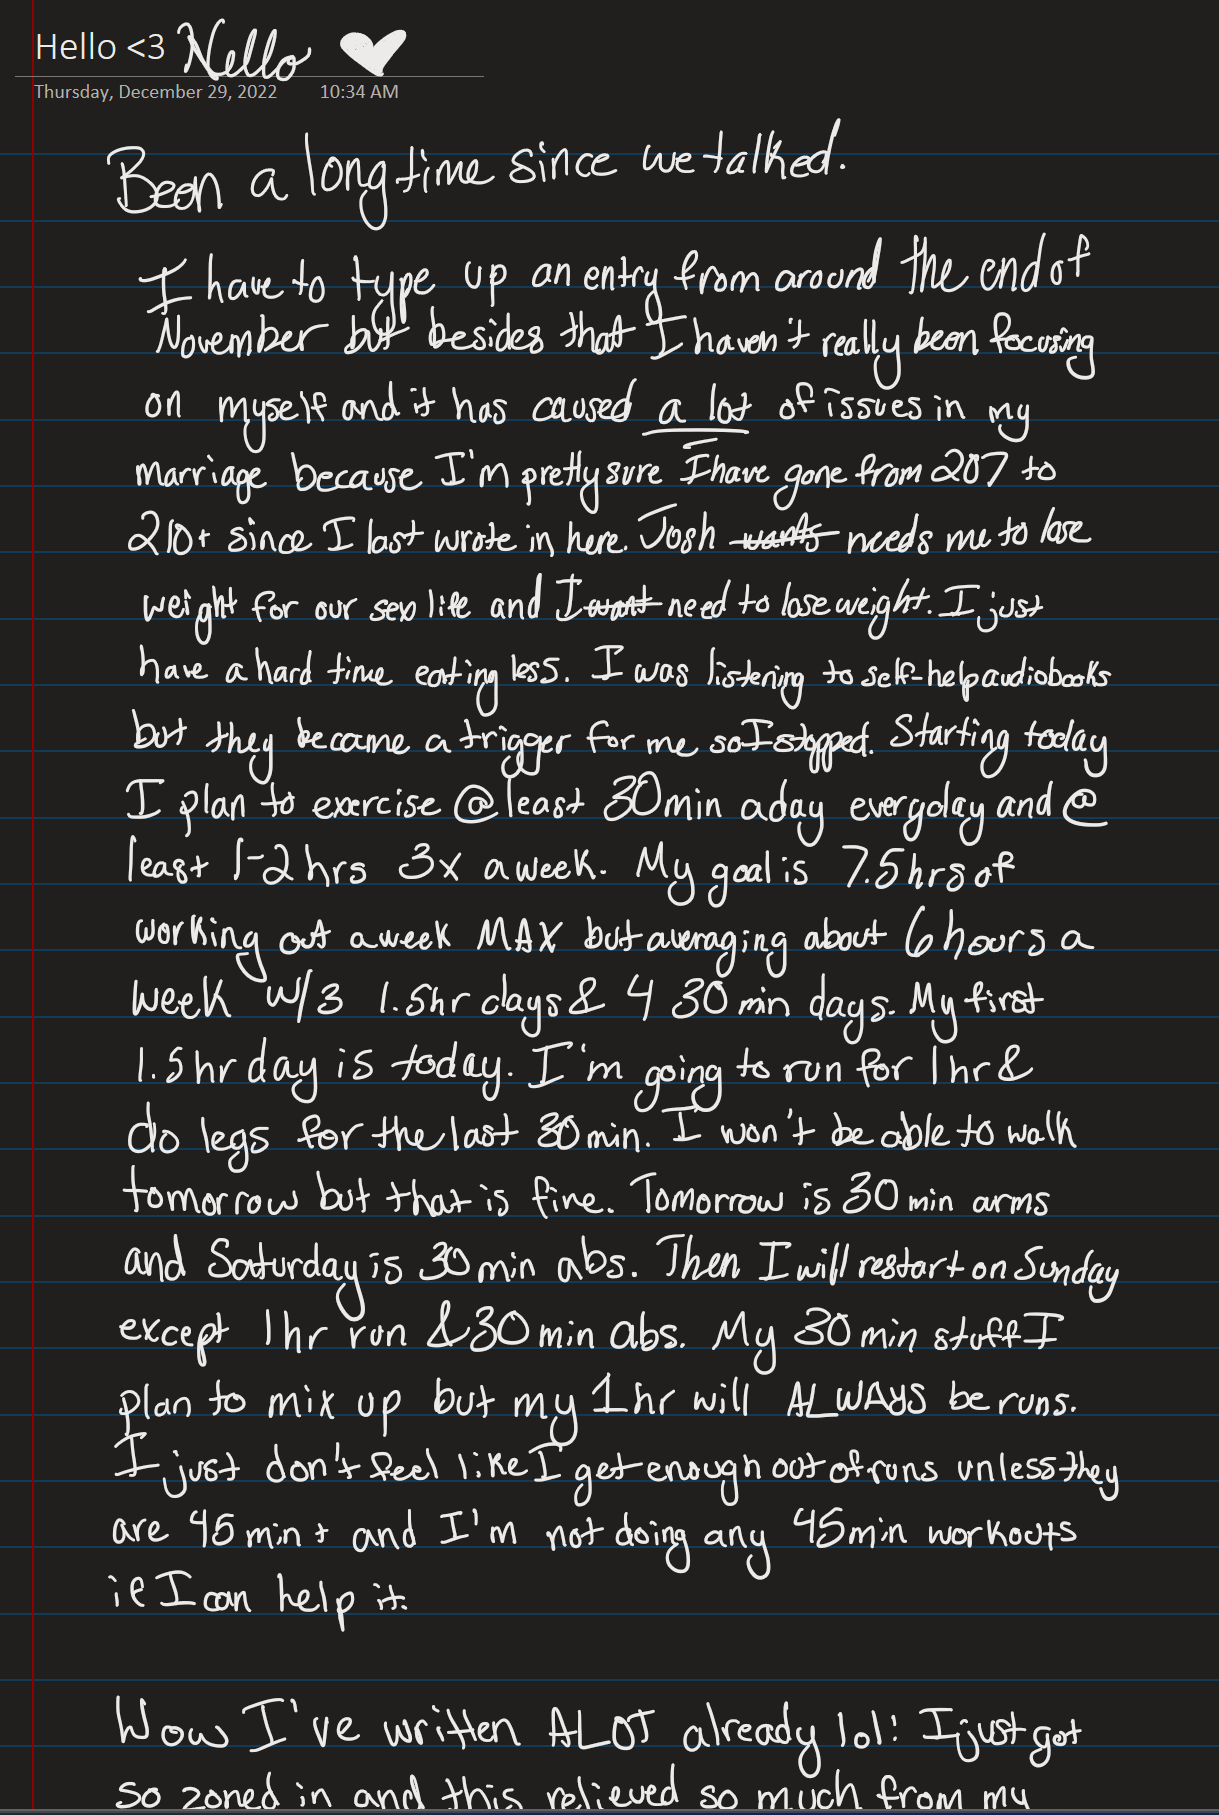 Hello <3 Hello ♥
Thursday, December 29, 2022 10:34 AM
Been a long time since we talked.
I have to type up an entry from around the end of
November but besides that I haven't really been focusing
on myself and it has caused a lot of issues in my
marriage because I'm pretty sure I have gone from 207 to
210+ since I last wrote in here. Josh wants needs me to lose
weight for our sex life and I want need to lose weight. I just
have a hard time eating less. I was listening to self-help audiobooks
but they became a trigger for me so I stopped. Starting today
I plan to exercise @ least 30 min a day everyday and @
least 1-2 hrs 3x a week. My goal is 7.5 hrs of
working out a week MAX but averaging about 6 hours a
week w/3 1.5 hr days & 4 30 min days. My first
1.5 hr day is today. I'm going to run for 1 hr &
do legs for the last 30 min. I won't be able to walk
tomorrow but that is fine. Tomorrow is 30 min arms
and Saturday is 30 min abs. Then I will restart on Sunday
except 1 hr run & 30 min abs. My 30 min stuff I
plan to mix up but my 1 hr will ALWAYS be runs.
I just don't feel like I get enough out of runs unless they
are 45 min+ and I'm not doing any 45 min workouts
if I can help it.
Wow I've written ALOT already lol! I just got
so zoned in and this relieved so much from my